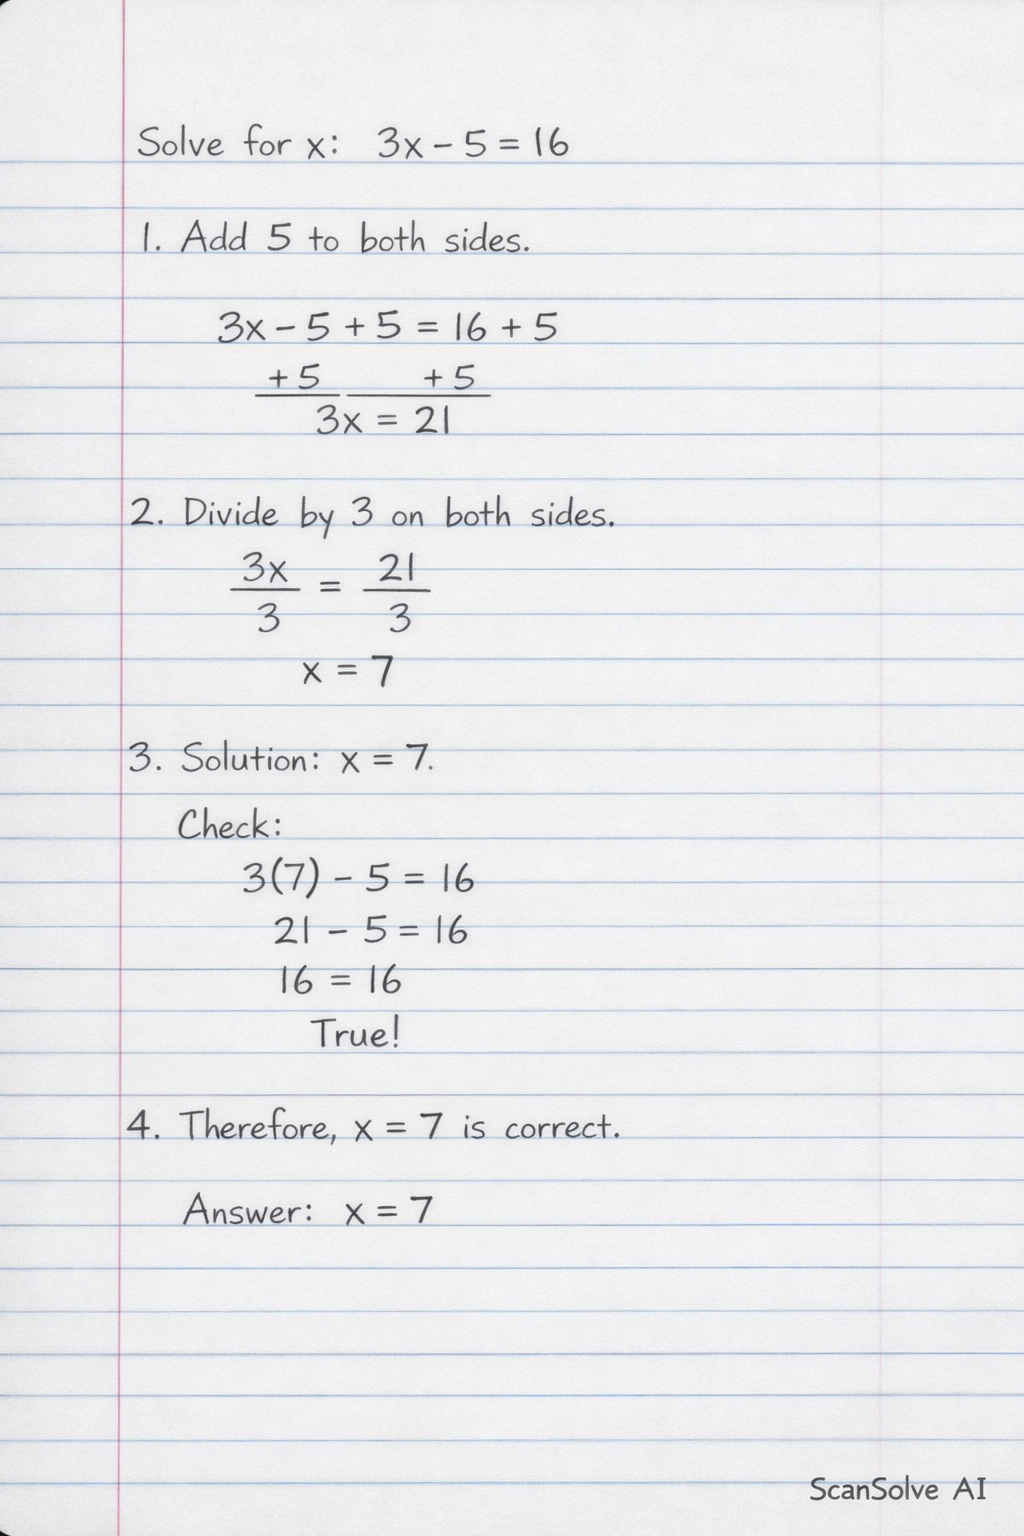 Solve for x: 3x - 5 = 16
1. Add 5 to both sides.
3x - 5 + 5 = 16 + 5
+5 +5
3x = 21
2. Divide by 3 on both sides.
3x = 21
3 3
x = 7
3. Solution: x = 7.
Check:
3(7) - 5 = 16
21 - 5 = 16
16 = 16
True!
4. Therefore, x = 7 is correct.
Answer: x = 7
ScanSolve AI